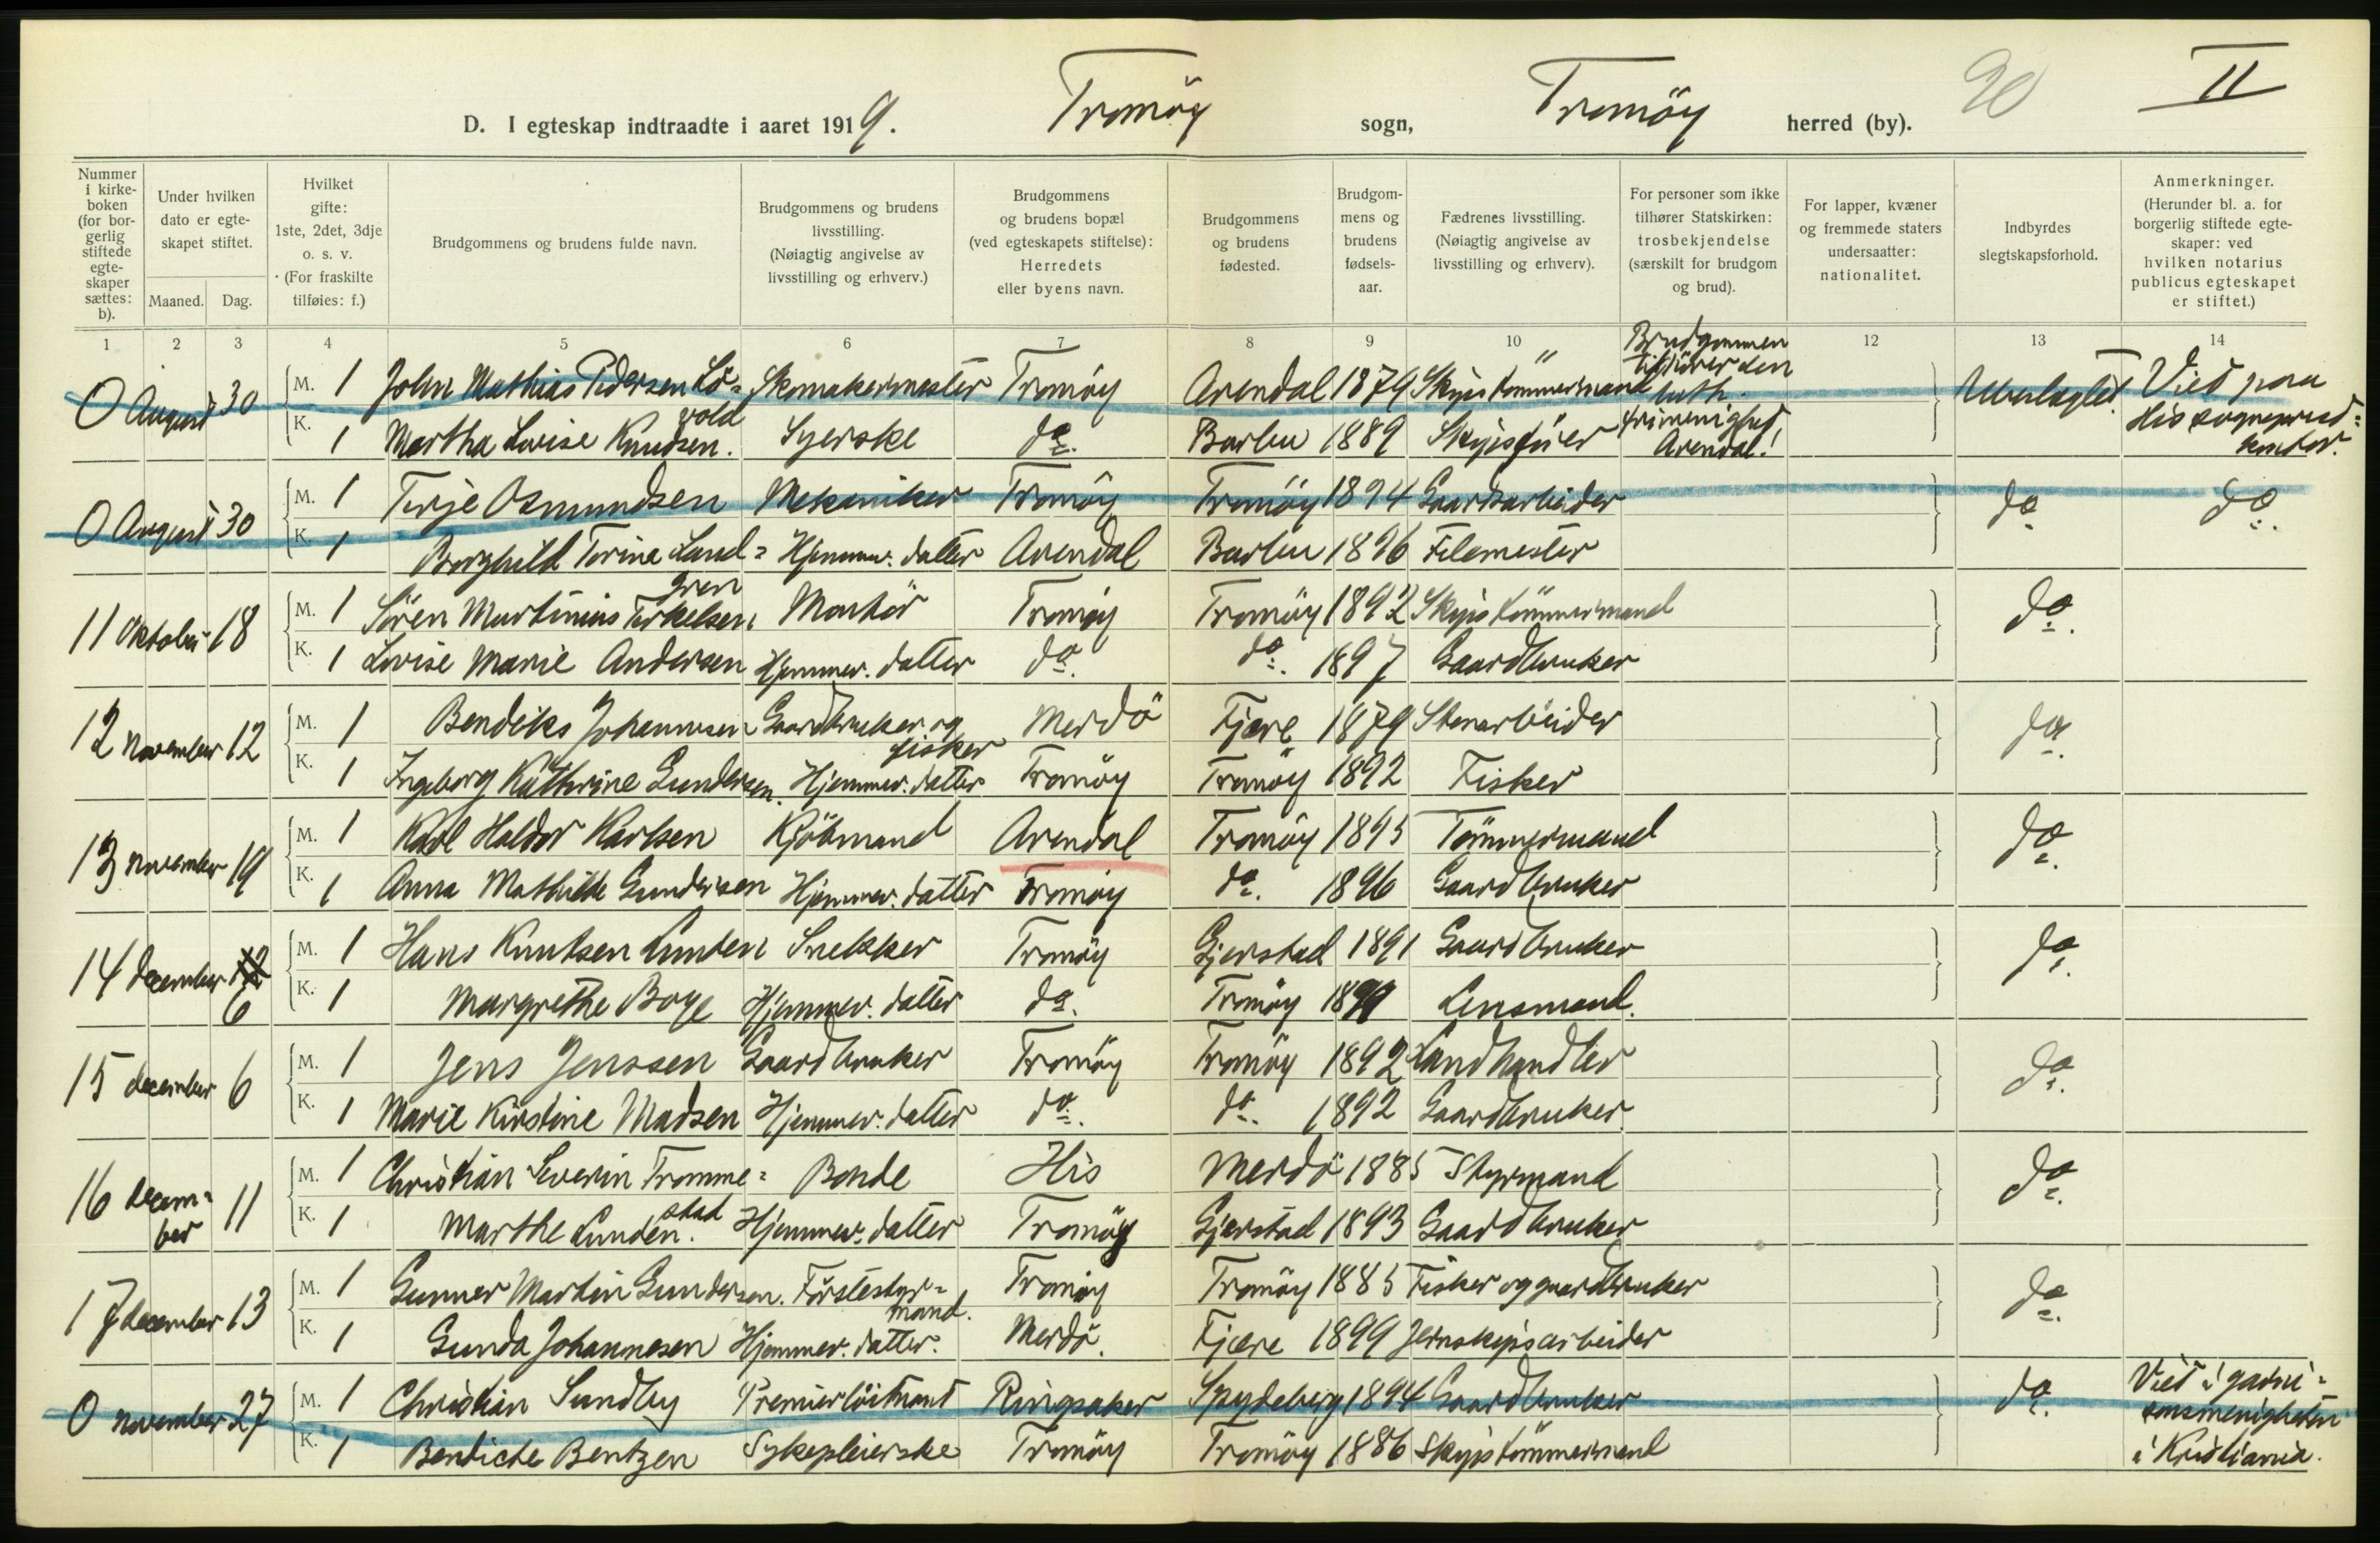 20 II
D. I egteskap indtraadte i aaret 1919. Tromöy sogn, Tromöy herred (by).
Nummer i kirkeboken (for borgerlig stiftede egteskaper sættes: b).
Under hvilken dato er egteskapet stiftet.
Maaned. Dag.
Hvilket gifte: 1ste, 2det, 3dje o. s. v. (For fraskilte tilføies: f.)
Brudgommens og brudens fulde navn.
Brudgommens og brudens livsstilling. (Nøiagtig angivelse av livsstilling og erhverv.)
Brudgommens og brudens bopæl (ved egteskapets stiftelse): Herredets eller byens navn.
Brudgommens og brudens fødested.
Brudgommens og brudens fødselsaar.
Fædrenes livsstilling. (Nøiagtig angivelse av livsstilling og erhverv).
For personer som ikke tilhører Statskirken: trosbekjendelse (særskilt for brudgom og brud).
For lapper, kvæner og fremmede staters undersaatter: nationalitet.
Indbyrdes slegtskapsforhold.
Anmerkninger. (Herunder bl. a. for borgerlig stiftede egteskaper: ved hvilken notarius publicus egteskapet er stiftet.)
1 2 3 4 5 6 7 8 9 10 11 12 13 14
0 August 30 M. 1 John Mathias Pedersen Lö=vold Skomakermester Tromöy Arendal 1879 Skipstömmermand Brudgommen tilhörer den luth. frimenighet Arendal! Ubeslegtet. Viet paa His sogneprest=kontor.
K. 1 Martha Lovise Knudsen. Syerske do. Barbu 1889 Skipsförer
0 August 30 M. 1 Terje Osmundsen Mekaniker Tromöy Tromöy 1894 Gaardsarbeider do do.
K. 1 Borghild Torine Lund=gren Hjemmev. datter Arendal Barbu 1896 Filemester
11 Oktober 18 M. 1 Sören Martinius Terkelsen Montör Tromöy Tromöy 1892 Skipstömmermand do.
K. 1 Lovise Marie Andersen Hjemmev. datter do. do. 1897 Gaardbruker
12 november 12 M. 1 Bendiks Johannesen Gaardbruker og fisker Merdö Fjære 1879 Stenarbeider do.
K. 1 Ingeborg Kathrine Gundersen. Hjemmev. datter Tromöy Tromöy 1892 Fisker
13 november 19 M. 1 Karl Haldor Karlsen Kjöbmand Arendal Tromöy 1895 Tömmermand do.
K. 1 Anna Mathilde Gundersen Hjemmev. datter Tromöy do. 1896 Gaardbruker
14 december 6 M. 1 Hans Knutsen Lunden Snekker Tromöy Gjerstad 1891 Gaardbruker do.
K. 1 Margrethe Boye Hjemmev. datter do. Tromöy Lensmand.
15 december 6 M. 1 Jens Jenssen Gaardbruker Tromöy Tromöy 1892 Landhandler do.
K. 1 Marie Kirstine Madsen Hjemmev. datter do. do. 1892 Gaardbruker
16 decem=ber 11 M. 1 Christian Severin Tromme=stad Bonde His Merdö 1885 Styrmand do.
K. 1 Marthe Lunden. Hjemmev. datter Tromöy Gjerstad 1893 Gaardbruker
17 december 13 M. 1 Gunner Martin Gundersen. Förstestyr=mand. Tromöy Tromöy 1885 Fisker og gaardbruker do.
K. 1 Gunda Johannesen Hjemmev. datter. Merdö. Fjære 1899 Jernskipsarbeider
0 november 27 M. 1 Christian Sundby Premierlöitnant Ringsaker Spydeberg 1894 Gaardbruker do. Viet i garni=sonsmenigheten i Kristiania.
K. 1 Bendicte Bentzen Sykepleierske Tromöy Tromöy 1886 Skipstömmermand